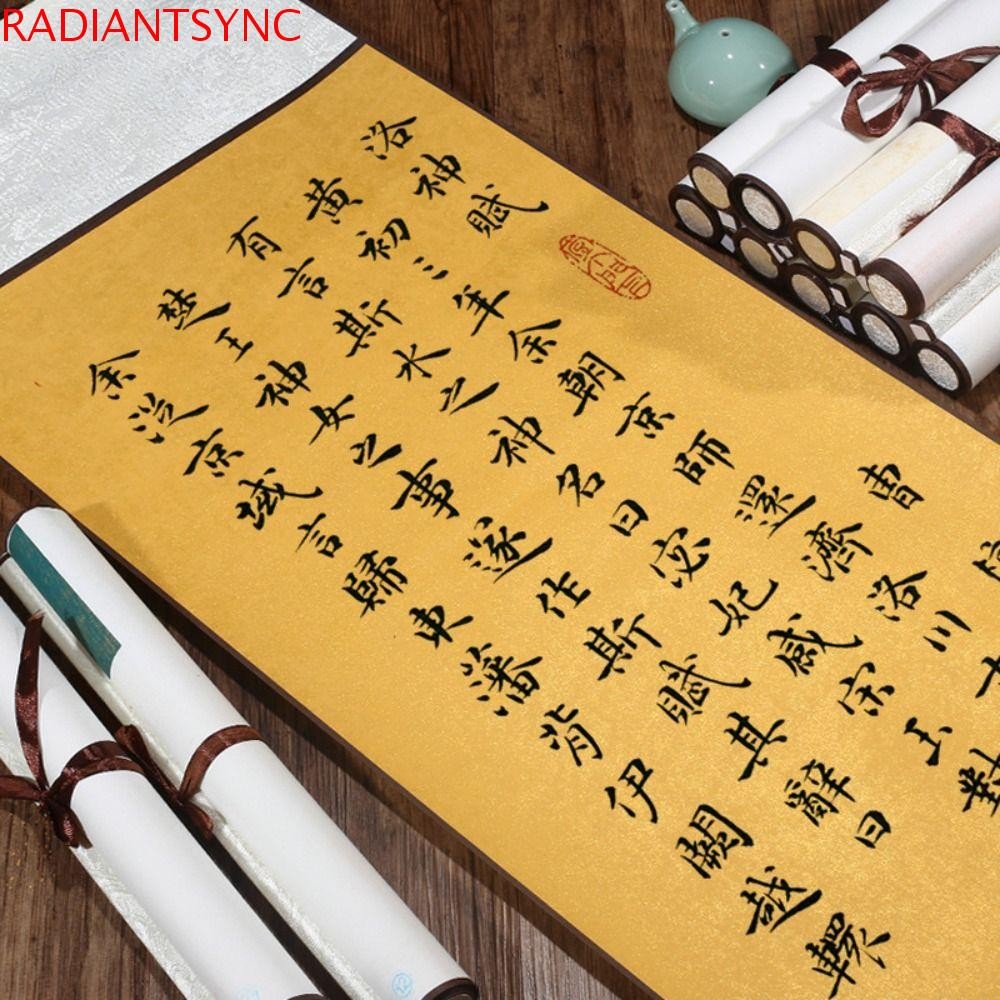 RADIANTSYNC
洛神賦 曹
黄初三年余朝京師還濟洛川
有言斯水之神名曰宓妃感宋玉對
楚王神女之事遂作斯賦其辭曰
余從京域言歸東藩背伊闕越轘
12